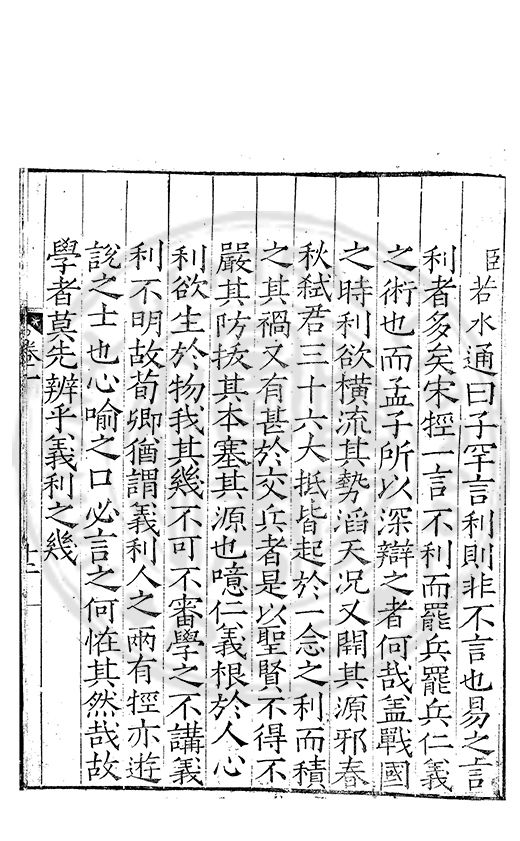 臣若水通曰子罕言利則非不言也易之言
利者多矣宋牼一言不利而罷兵罷兵仁義
之術也而孟子所以深辯之者何哉盖戰國
之時利欲橫流其勢滔天况又開其源邪春
秋弑君三十六大抵皆起於一念之利而積
之其禍又有甚於交兵者是以聖賢不得不
嚴其防拔其本塞其源也噫仁義根於人心
利欲生於物我其幾不可不審學之不講義
利不明故荀卿猶謂義利人之兩有牼亦遊
說之士也心喻之口必言之何恠其然哉故
學者莫先辨乎義利之幾
卷一
十二